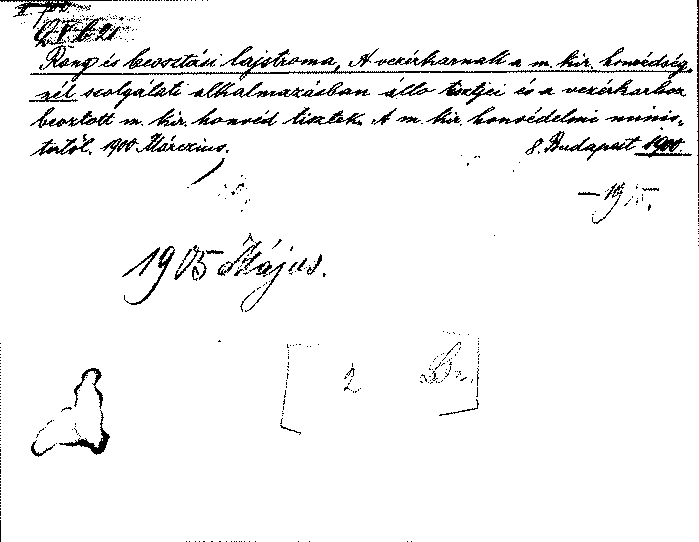 Rang és beosztási lajstroma, A vezérkarnak a m. kir. honvédség-
nél szolgálati alkalmazásban álló tisztjei és a vezérkarhoz
beosztott m. kir. honvéd tisztek. A m. kir. honvédelmi minis-
tertől. 1900 Márczius. 8. Budapest 1900
1905 Május.
2